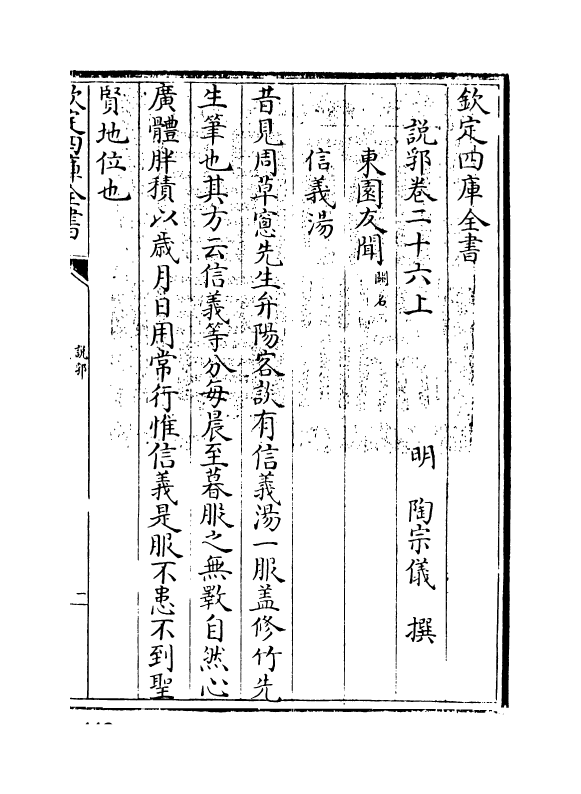 欽定四庫全書
說郛卷二十六上　　　明　陶宗儀　撰
東園友聞闕名
信義湯
昔見周草窻先生弁陽客談有信義湯一服盖修竹先
生筆也其方云信義等分每晨至暮服之無斁自然心
廣體胖積以歳月日用常行惟信義是服不患不到聖
賢地位也
欽定四庫全書
說郛
二